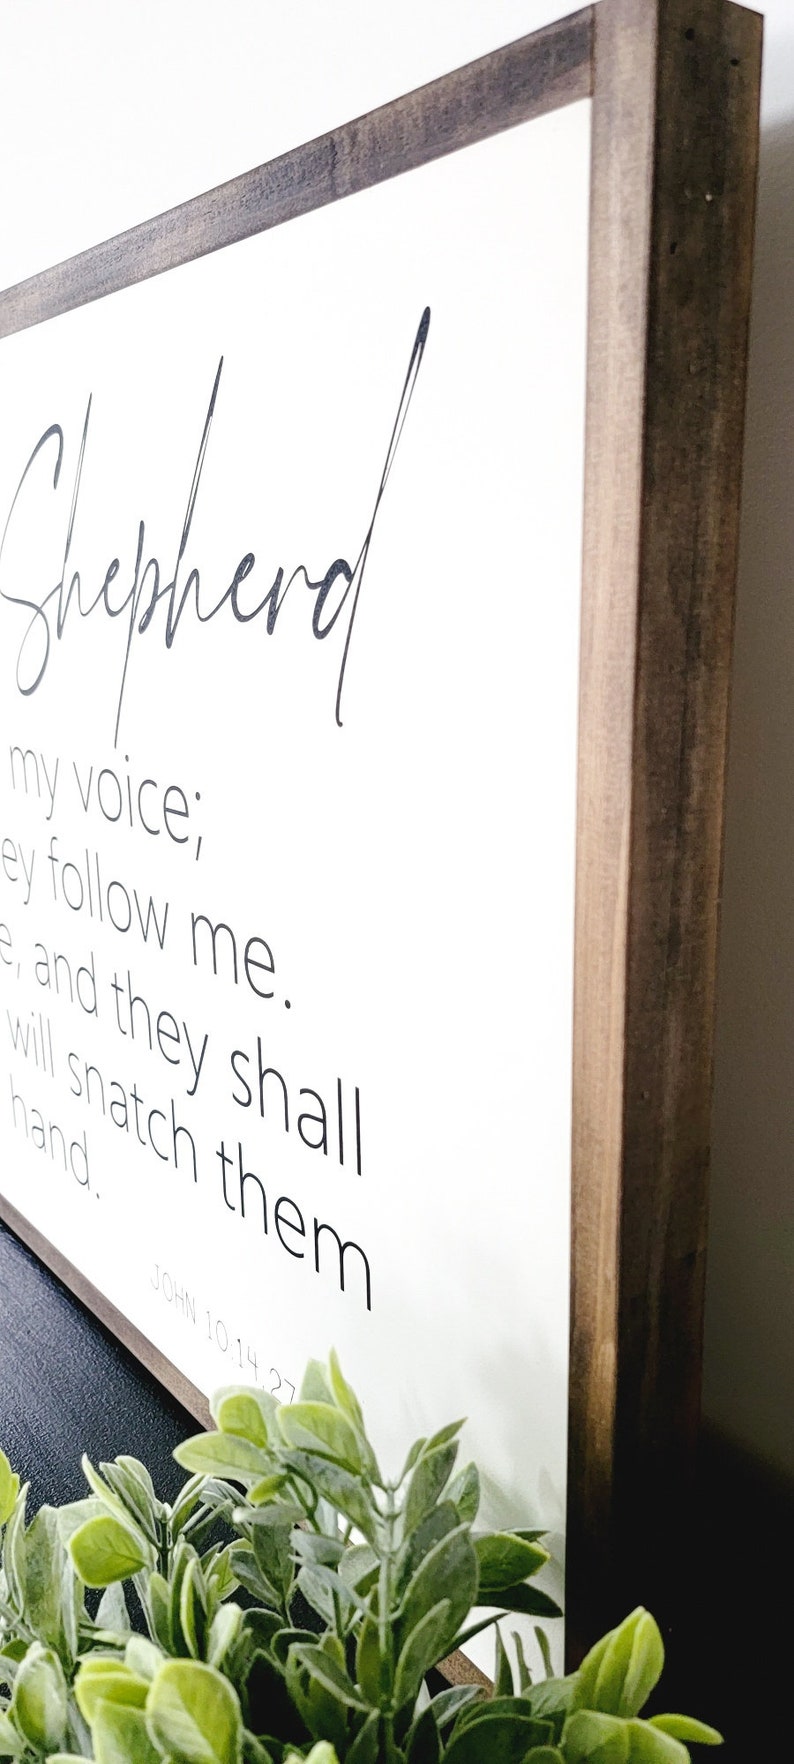 Shepherd
my voice;
ey follow me.
e, and they shall
will snatch them
hand.
JOHN 10:14,27